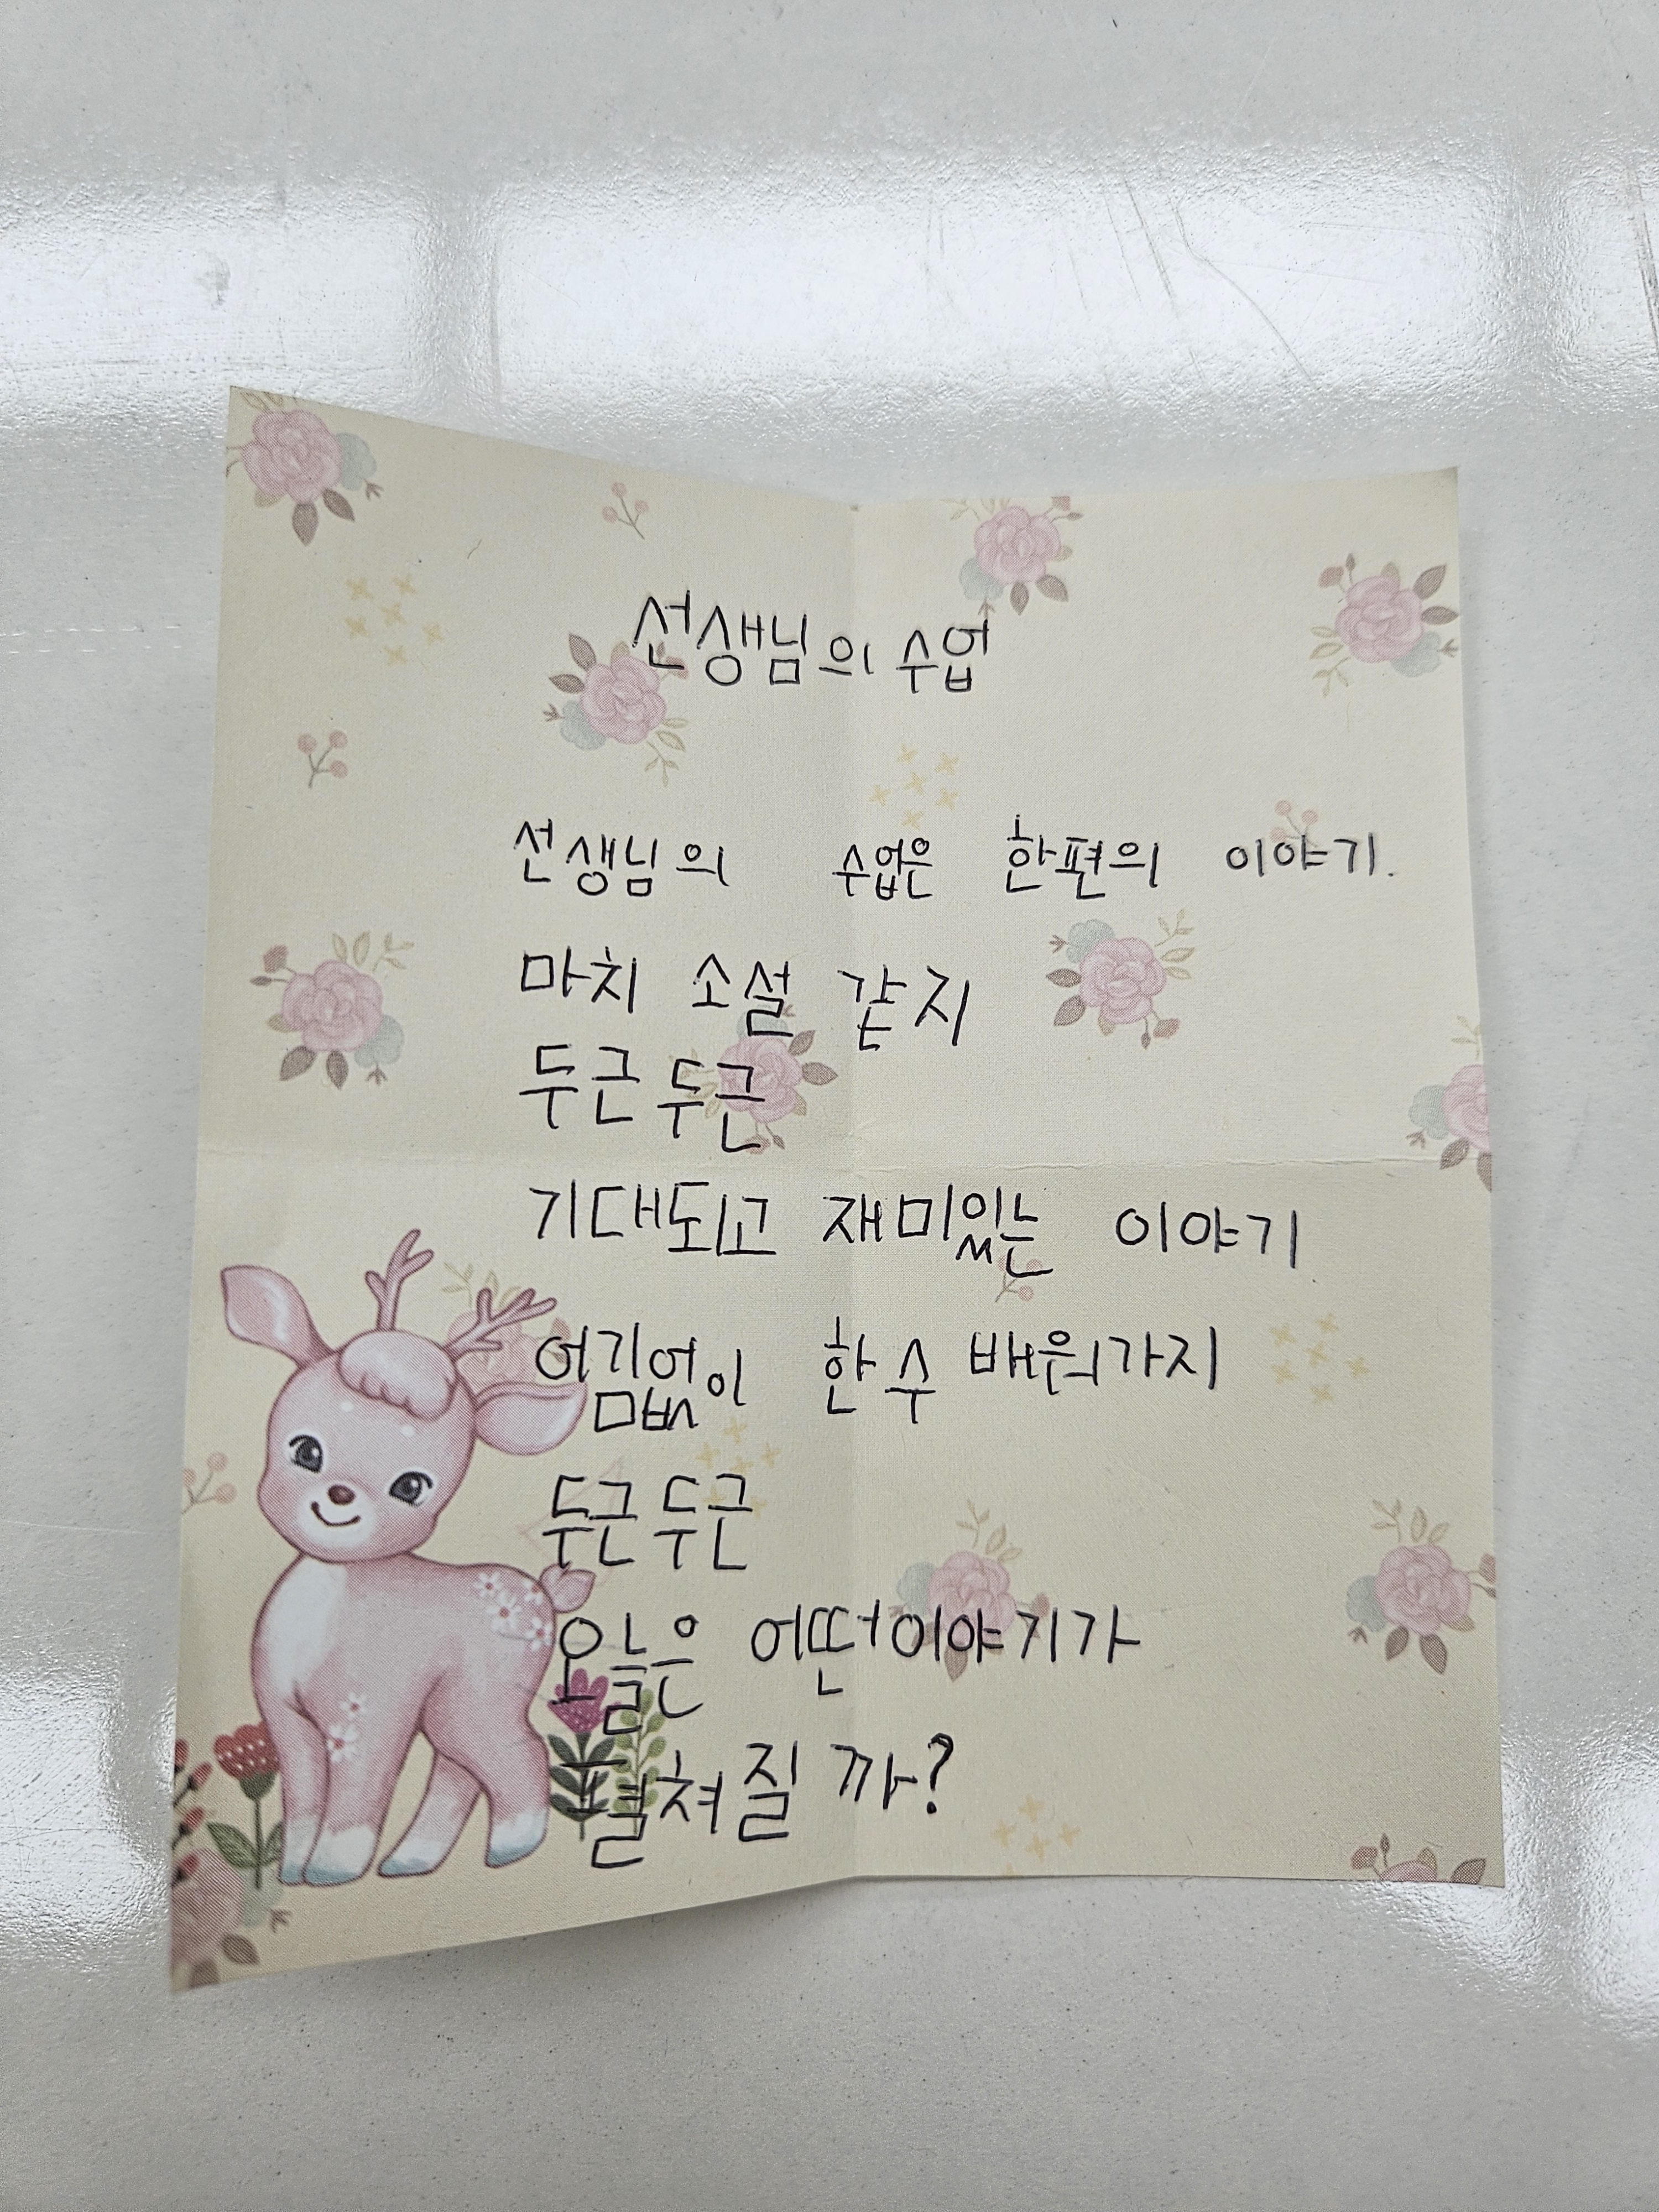 선생님의 수업
선생님의 수업은 한편의 이야기.
마치 소설 같지
두근두근
기대되고 재미있는 이야기
어김없이 한 수 배워가지
두근두근
오늘은 어떤이야기가
펼쳐질 까?